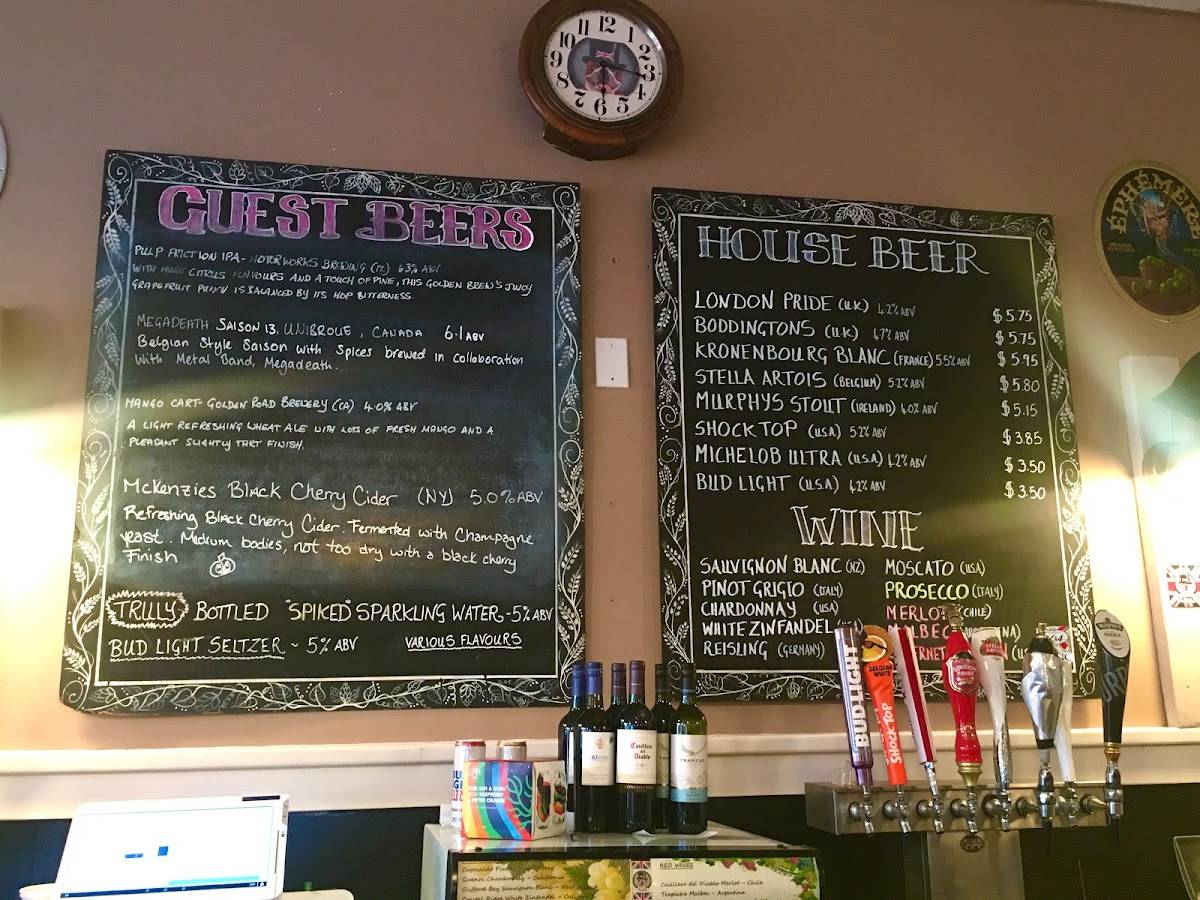 12
1
2
3
4
5
6
7
8
9
10
11
GUEST BEERS
PULP FRICTION IPA- MOTORWORKS BREWING (FL) 6.3% ABV
WITH HUGE CITRUS FLAVOURS AND A TOUCH OF PINE, THIS GOLDEN BREW'S JUICY
GRAPEFRUIT PUNCH IS BALANCED BY ITS HOP BITTERNESS.
MEGADEATH SAISON 13. UNIBROUE, CANADA 6.1 ABV
Belgian Style Saison with Spices brewed in collaboration
With Metal Band, Megadeath.
MANGO CART- GOLDEN ROAD BREWERY (CA) 4.0% ABV
A LIGHT REFRESHING WHEAT ALE WITH LOTS OF FRESH MANGO AND A
PLEASANT SLIGHTLY TART FINISH.
McKenzies Black Cherry Cider (NY) 5.0% ABV
Refreshing Black Cherry Cider. Fermented with Champagne
yeast. Medium bodies, not too dry with a black cherry
Finish
TRULLY BOTTLED "SPIKED" SPARKLING WATER - 5% ABV
BUD LIGHT SELTZER ~ 5% ABV VARIOUS FLAVOURS
HOUSE BEER
LONDON PRIDE (U.K) 4.2% ABV $5.75
BODDINGTONS (U.K) 4.7% ABV $5.75
KRONENBOURG BLANC (FRANCE) 5.5% ABV $5.95
STELLA ARTOIS (BELGIUM) 5.2% ABV $5.80
MURPHYS STOUT (IRELAND) 4.0% ABV $5.15
SHOCK TOP (U.S.A) 5.2% ABV $3.85
MICHELOB ULTRA (U.S.A) 4.2% ABV $3.50
BUD LIGHT (U.S.A) 4.2% ABV $3.50
WINE
SAUVIGNON BLANC (NZ) MOSCATO (USA)
PINOT GRIGIO (ITALY) PROSECCO (ITALY)
CHARDONNAY (USA) MERLOT (CHILE)
WHITE ZINFANDEL (USA
REISLING (GERMANY)
ÉPHÉMÈRE
BUD LIGHT
BELGIAN
WHITE
SHOCK TOP
Casillero
del Diablo
TRAPICHE
RED WINES
Casillero del Diablo Merlot ~ Chile
Trapiche Malbec ~ Argentina